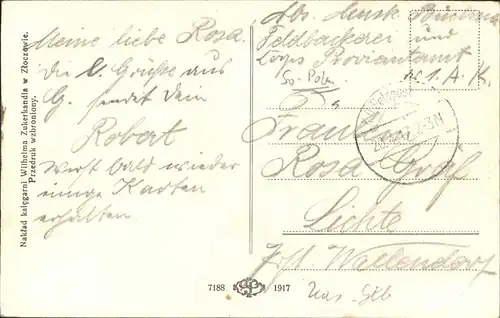 Meine liebe Rosa.
die l. Grüße aus
G. sendet Dein
Robert
Werst bald wieder
einige Karten
erhalten.
Nakład księgarni Wilhelma Zukerkandla w Złoczowie.
Przedruk wzbroniony.
Abs. Musk.
Feldbäckerei und
Proviantamt
1. A. K.
Fräulein
Rosa Greif
Lichte
Wallendorf
7188 1917